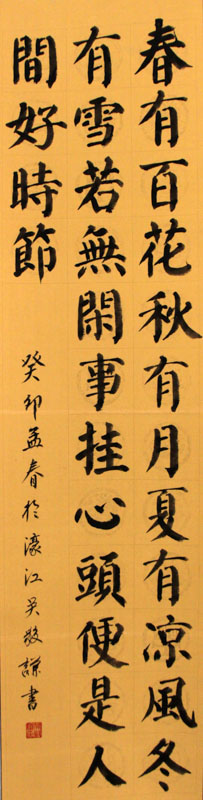 春有百花秋有月夏有凉風冬
有雪若無閑事挂心頭便是人
間好時節
癸卯孟春於濠江吴敬謙書